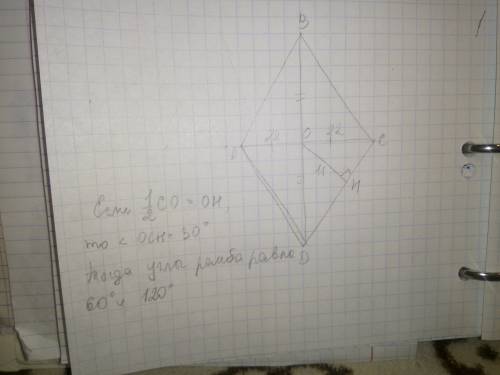 B
O
22
C
11
H
D
Если 1/2 CO = OH,
то < OCH = 30°
Тогда углы ромба равно
60° и 120°